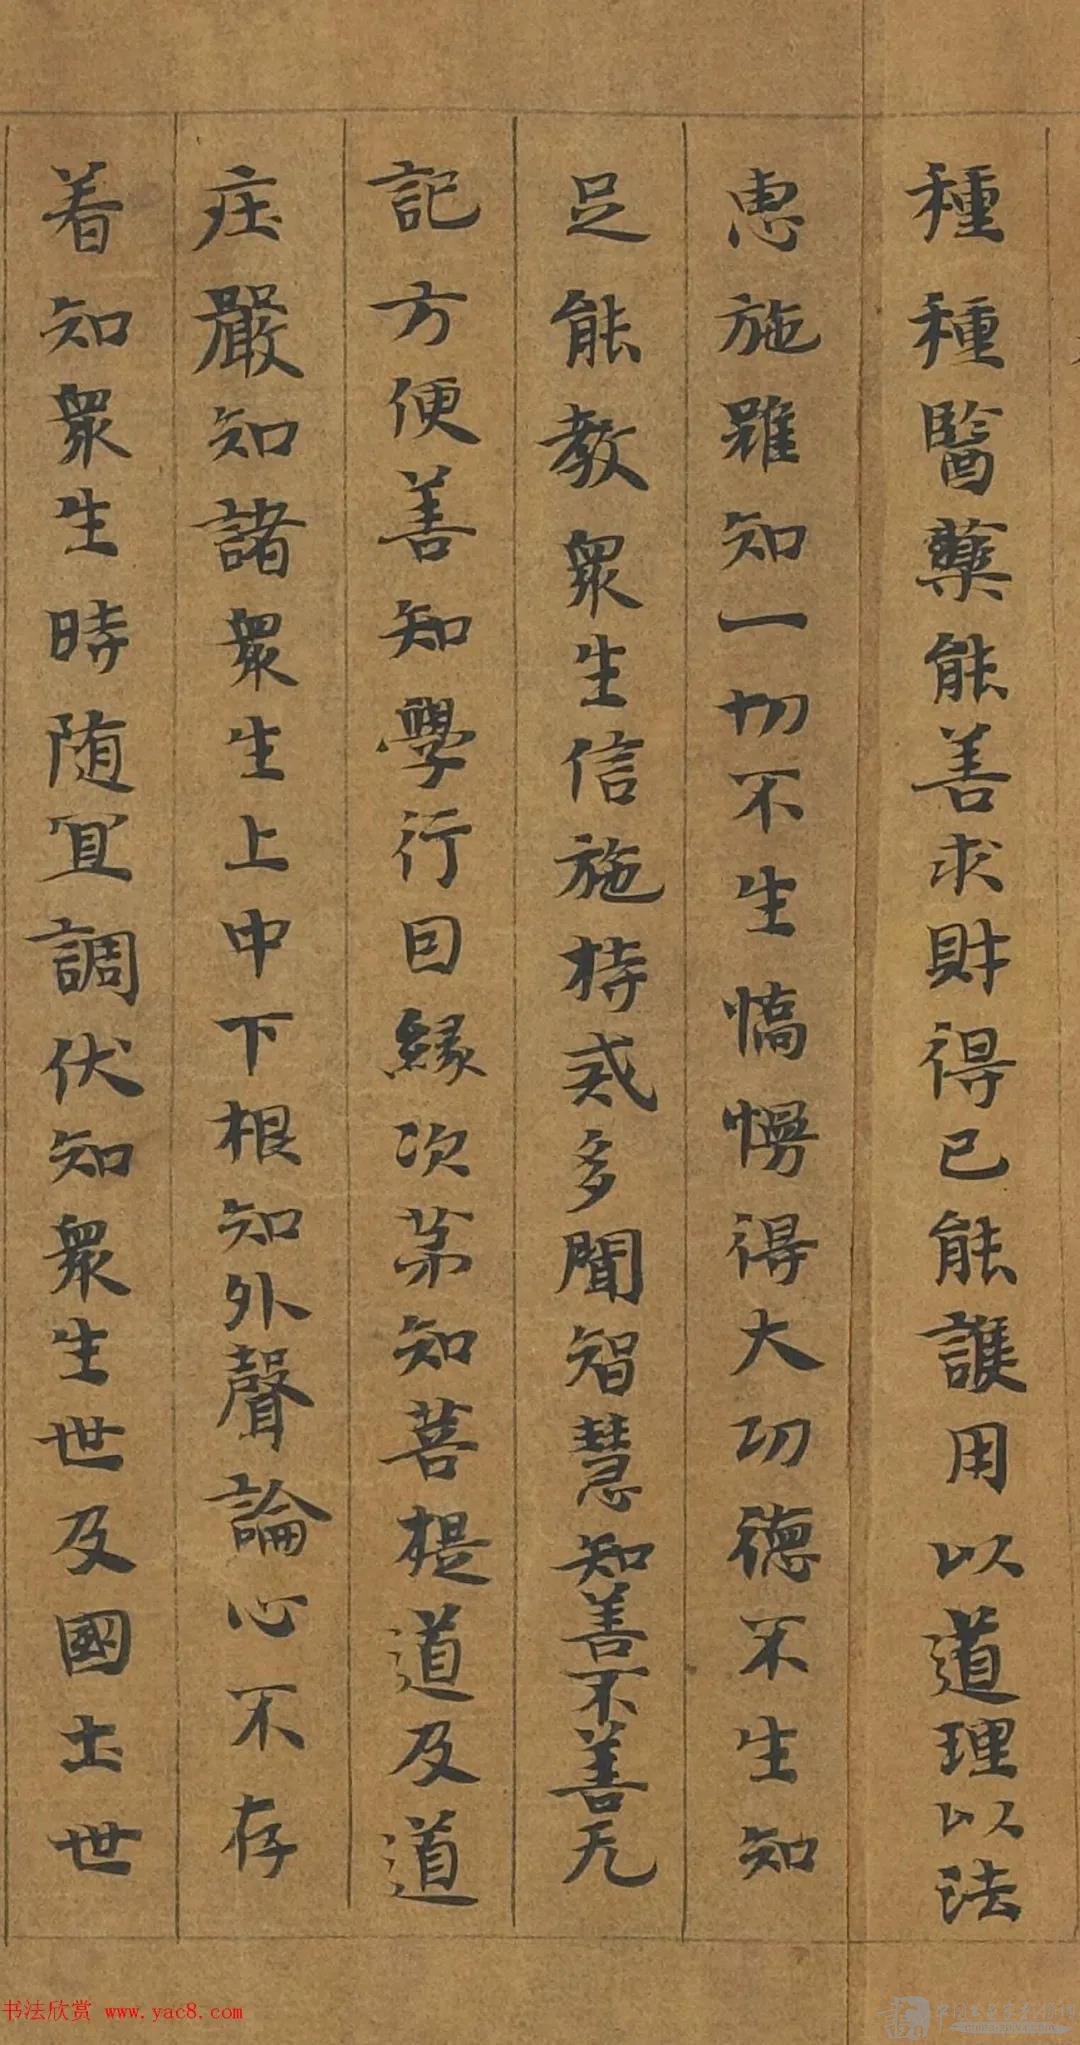 種種醫藥能善求財得已能護用以道理以法
惠施雖知一切不生憍慢得大功德不生知
足能教衆生信施持戒多聞智慧知善不善无
記方便善知學行因縁次苐知菩提道及道
庄嚴知諸衆生上中下根知外聲論心不存
着知衆生時随宜調伏知衆生世及國土世
书法欣赏 www.yac8.com